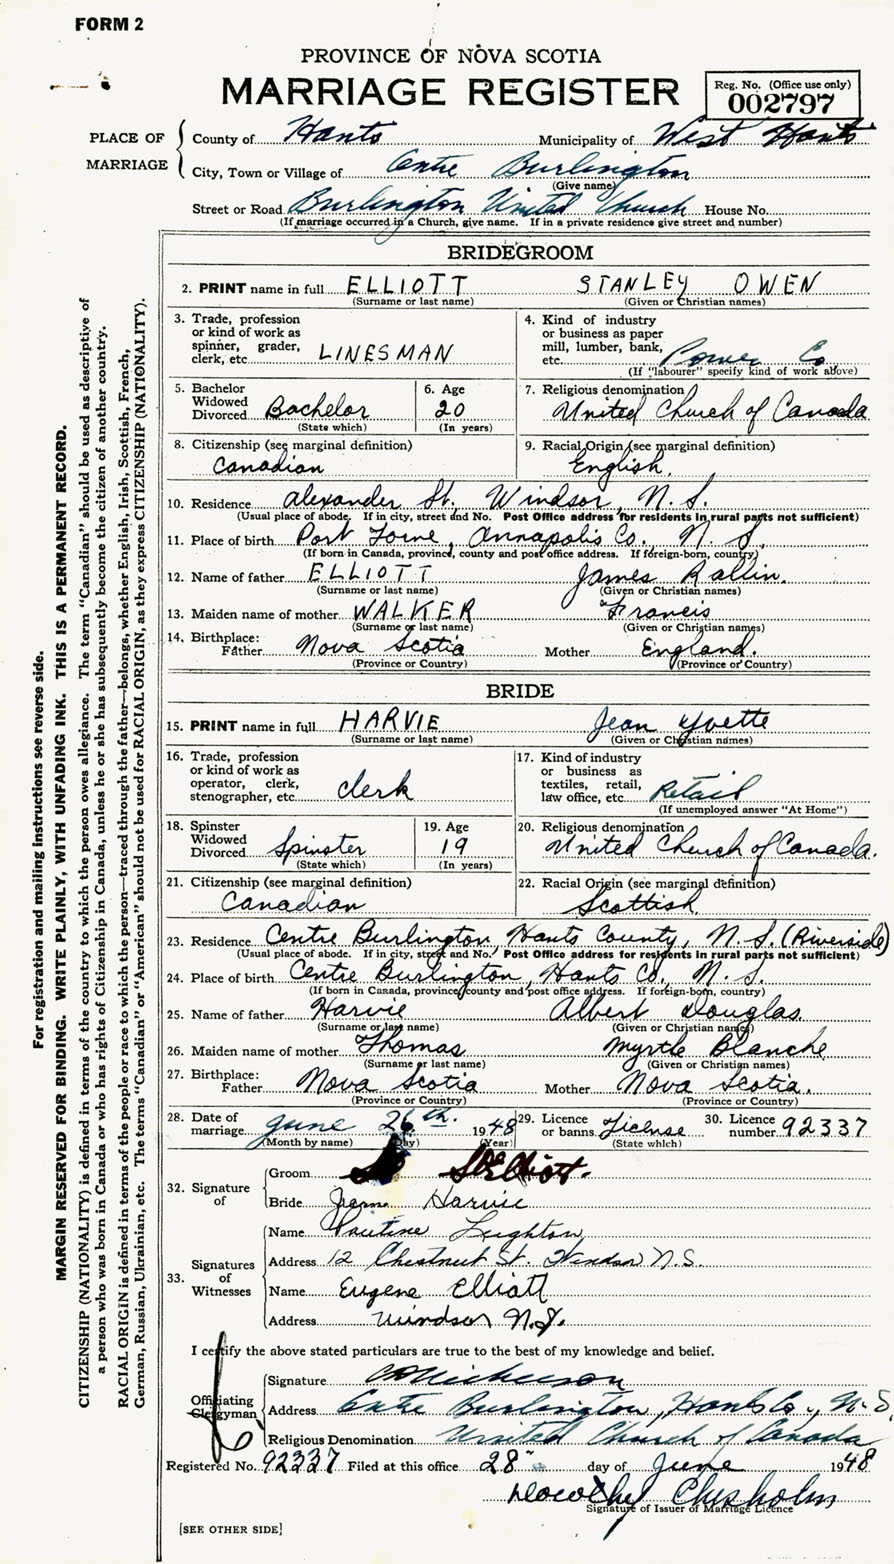 FORM 2
PROVINCE OF NOVA SCOTIA
MARRIAGE REGISTER
Reg. No. (Office use only)
002797
PLACE OF MARRIAGE
County of Hants Municipality of West Hants
City, Town or Village of Centre Burlington
(Give name)
Street or Road Burlington United Church House No.
(If marriage occurred in a Church, give name. If in a private residence give street and number)
BRIDEGROOM
2. PRINT name in full ELLIOTT STANLEY OWEN
(Surname or last name) (Given or Christian names)
3. Trade, profession or kind of work as spinner, grader, clerk, etc. LINESMAN
4. Kind of industry or business as paper mill, lumber, bank, etc. Power Co.
(If "labourer" specify kind of work above)
5. Bachelor Widowed Divorced Bachelor
(State which)
6. Age 20
(In years)
7. Religious denomination United Church of Canada
8. Citizenship (see marginal definition) Canadian
9. Racial Origin (see marginal definition) English
10. Residence Alexander St. Windsor, N. S.
(Usual place of abode. If in city, street and No. Post Office address for residents in rural parts not sufficient)
11. Place of birth Port Lorne, Annapolis Co. N. S.
(If born in Canada, province, county and post office address. If foreign-born, country)
12. Name of father ELLIOTT James
(Surname or last name) (Given or Christian names)
13. Maiden name of mother WALKER Francis
(Surname or last name) (Given or Christian names)
14. Birthplace:
Father Nova Scotia Mother England.
(Province or Country) (Province or Country)
BRIDE
15. PRINT name in full HARVIE Jean Yvette
(Surname or last name) (Given or Christian names)
16. Trade, profession or kind of work as operator, clerk, stenographer, etc. Clerk
17. Kind of industry or business as textiles, retail, law office, etc. Retail
(If unemployed answer "At Home")
18. Spinster Widowed Divorced Spinster
(State which)
19. Age 19
(In years)
20. Religious denomination United Church of Canada.
21. Citizenship (see marginal definition) Canadian
22. Racial Origin (see marginal definition) Scottish
23. Residence Centre Burlington, Hants County, N. S. (Riverside)
(Usual place of abode. If in city, street and No. Post Office address for residents in rural parts not sufficient)
24. Place of birth Centre Burlington, Hants Co., N. S.
(If born in Canada, province, county and post office address. If foreign-born, country)
25. Name of father Harvie Albert Douglas
(Surname or last name) (Given or Christian names)
26. Maiden name of mother Thomas Myrtle Blanche
(Surname or last name) (Given or Christian names)
27. Birthplace:
Father Nova Scotia Mother Nova Scotia.
(Province or Country) (Province or Country)
28. Date of marriage June 26th. 1948
(Month by name) (Day) (Year)
29. Licence or banns License
(State which)
30. Licence number 92337
32. Signature of
Groom S O Elliott.
Bride Jean Harvie
33. Signatures of Witnesses
Name Pauline Leighton
Address 12 Chestnut St. Windsor N.S.
Name Eugene Elliott
Address Windsor N.S.
I certify the above stated particulars are true to the best of my knowledge and belief.
Officiating Clergyman
Signature Nickerson
Address Centre Burlington, Hants Co., N. S.
Religious Denomination United Church of Canada
Registered No. 92337 Filed at this office 28" day of June 1948
Dorothy Chisholm
Signature of Issuer of Marriage Licence
[SEE OTHER SIDE]
For registration and mailing instructions see reverse side.
MARGIN RESERVED FOR BINDING. WRITE PLAINLY, WITH UNFADING INK. THIS IS A PERMANENT RECORD.
CITIZENSHIP (NATIONALITY) is defined in terms of the country to which the person owes allegiance. The term "Canadian" should be used as descriptive of
a person who was born in Canada or who has rights of Citizenship in Canada, unless he or she has subsequently become the citizen of another country.
RACIAL ORIGIN is defined in terms of the people or race to which the person—traced through the father—belongs, whether English, Irish, Scottish, French,
German, Russian, Ukrainian, etc. The terms "Canadian" or "American" should not be used for RACIAL ORIGIN, as they express CITIZENSHIP (NATIONALITY).